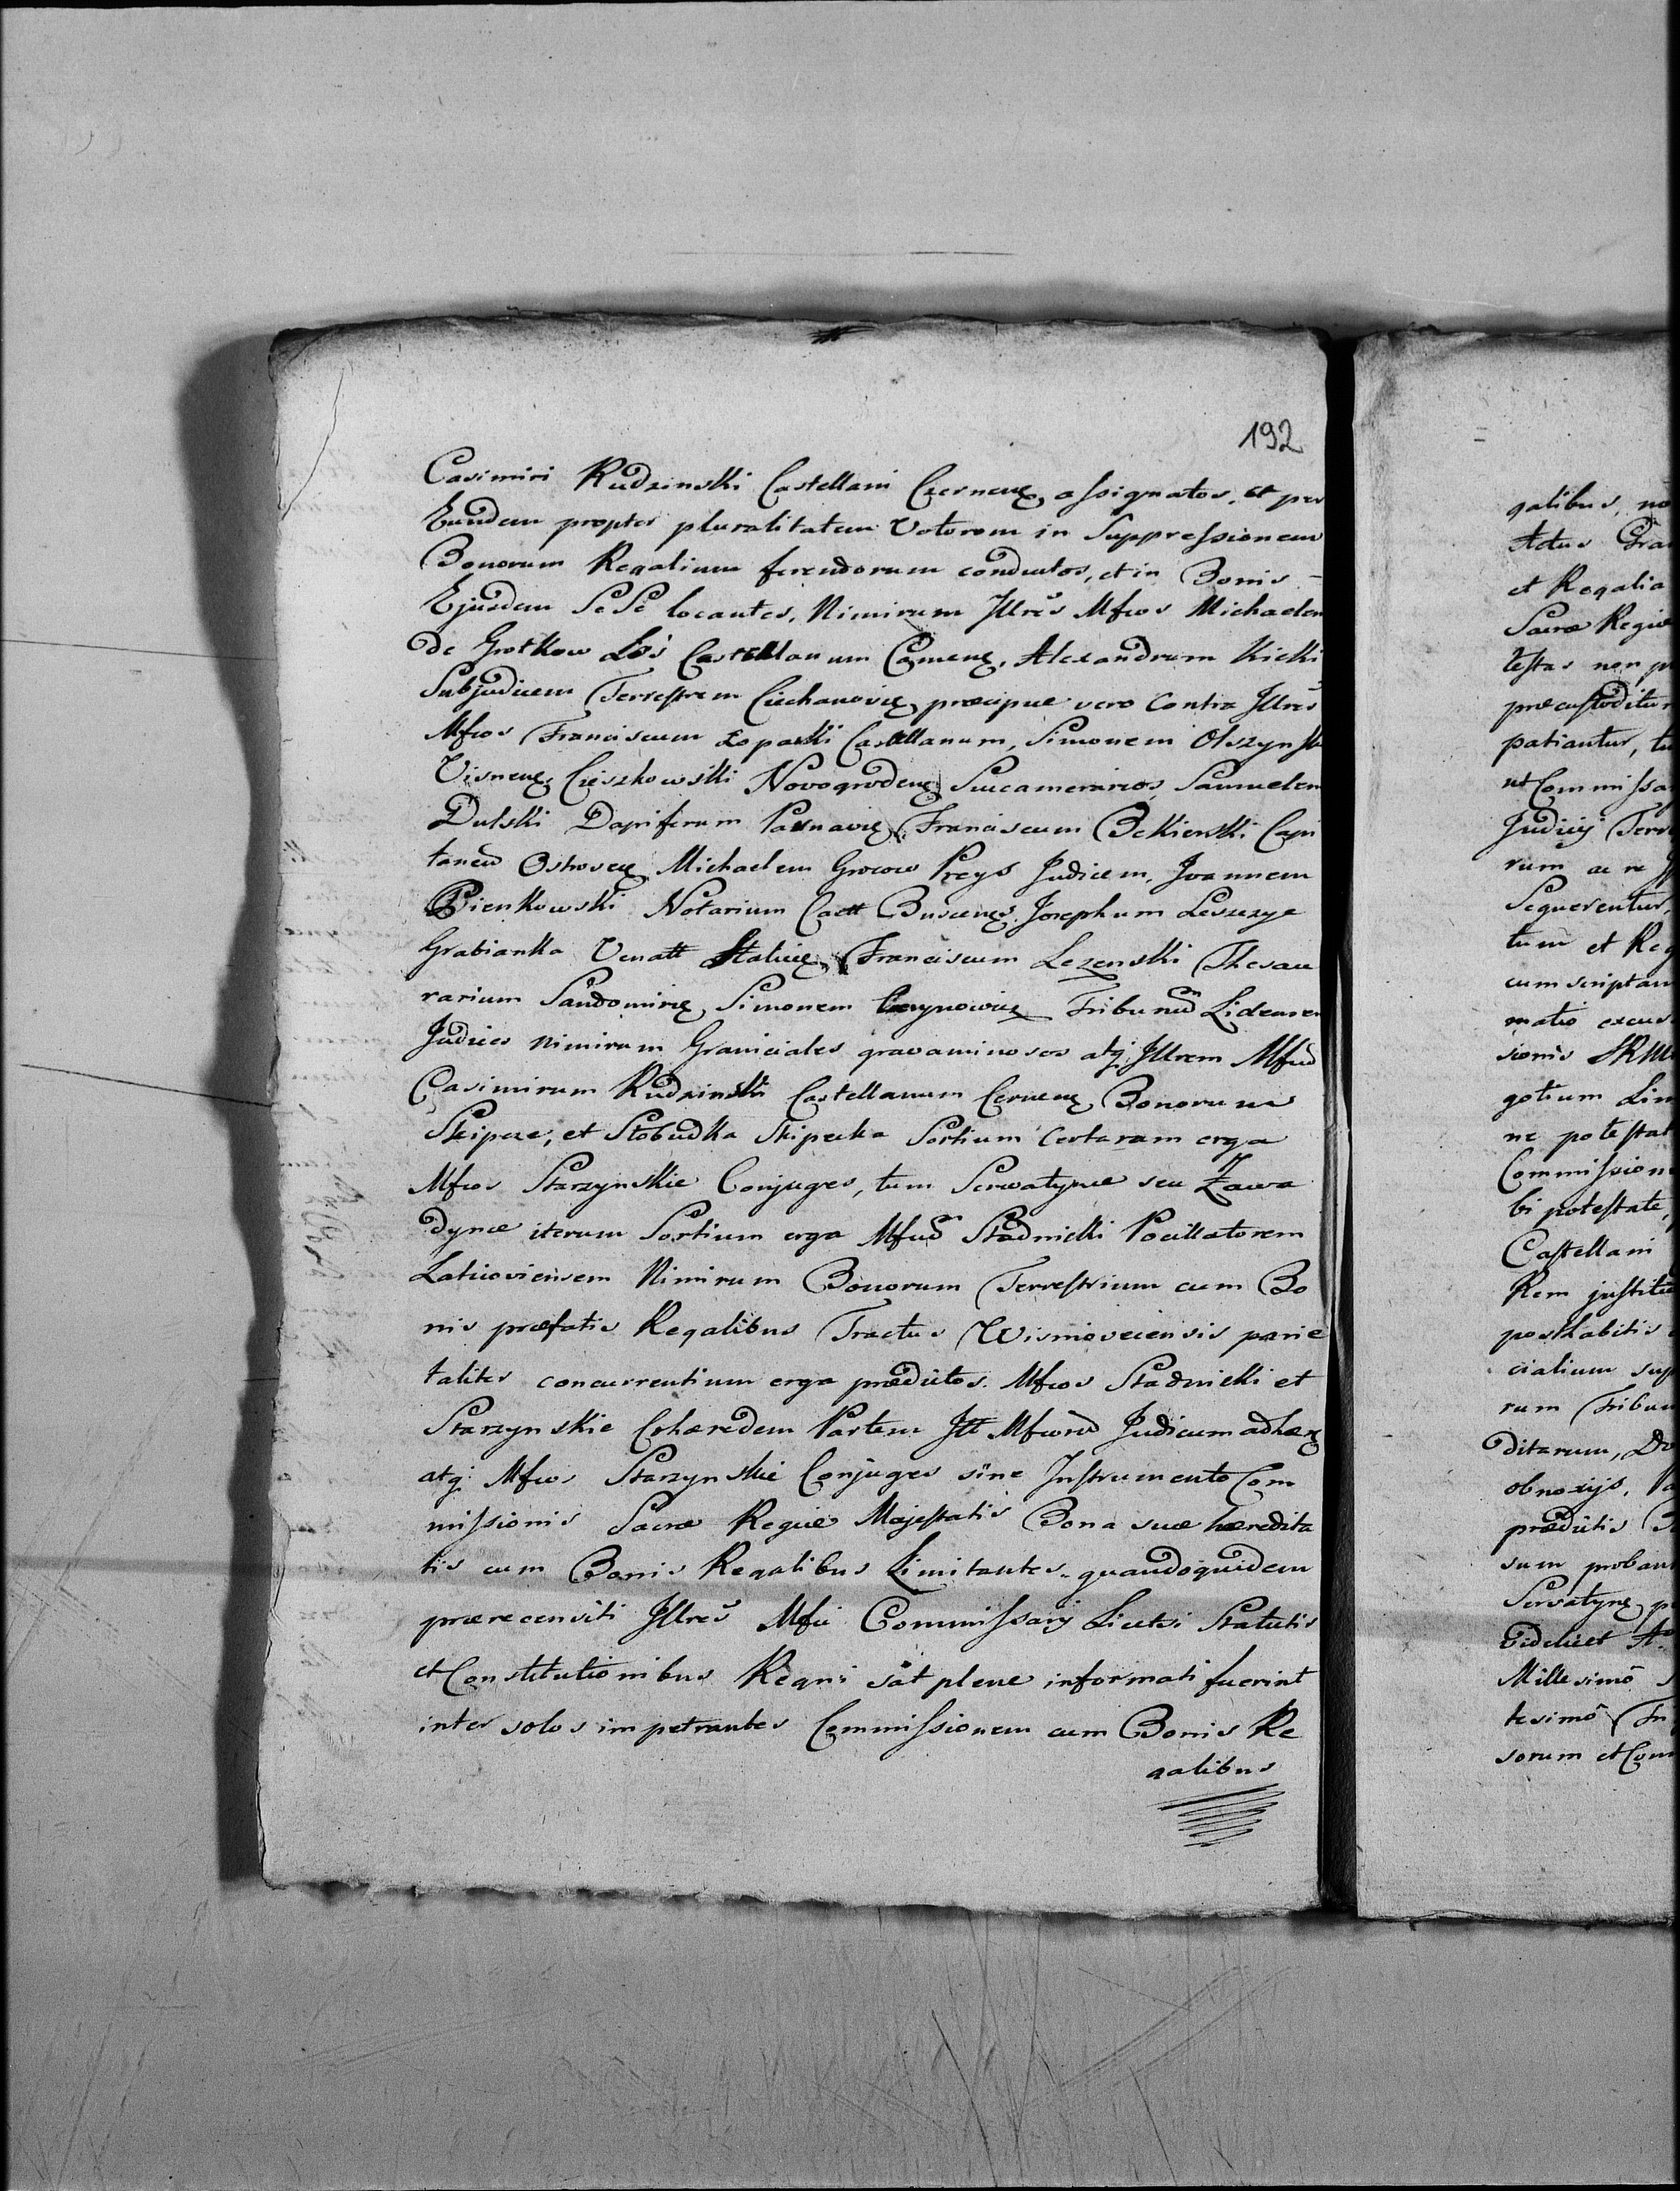 192
Casimiri Rudzinski Castellani Czerneń, assignatos, et per
Eundem propter pluralitatem Votorom in Suppressionem
Bonorum Regalium ferendorum conductos, et in Bonis
Ejusdem SeSe locantes, Nimirum Jllres Mfcos Michaelem
de Grotkow Łoś Castellanum Camenę, Alexandrum Kicki
Subjudicem Terrestrem Ciechanovię, præcipue vero Contra Jllres
Mfcos Franciscum Łopacki Castellanum, Simonem Olszynski
Visnenę, Cieszkowski Novogrodenę Succamerarios, Samuelem
Dulski Dapiferum Parnavię, Franciscum Bekierski Capi
taneu Ostrovenę Michaelem Grocow Preys Judicem, Joannem
Pienkowski Notarium Castt Buscenę, Josephum Leszczyc
Grabianka Venatt Halicię, Franciscum Lezenski Thesau
rarium Sandomirię, Simonem Tribunu Lidensem
Judices Nimirum Graniciales gravaminosos atq Jllrem Mfcu
Casimirum Rudzinski Castellanum Cernenę Bonorum
Skipcze, et Słobudka Skipecka Sortium Certarum erga
Mfcos Starzynskie Conjuges, tum Serwatynce seu Zawa
dynce iterum Sortium erga Mfcu Stadnicki Pocillatorem
Laticoviensem Nimirum Bonorum Terrestrium cum Bo
nis præfatis Regalibus Tractus Wisniovecensis parie
taliter concurrentium erga prædictos Mfcos Stadnicki et
Starzynskie Cohæredem Partem Jll Mfcoru Judicum adhærę
atq Mfcos Starzynskie Conjuges sine Instrumento Com
missionis Sacræ Regiæ Majestatis Bona suæ hæredita
tis cum Bonis Regalibus Limitantes, quandoquidem
prærecensiti Jllres Mfci Commissarij Licetsi Statutis
et Constitutionibus Regni sat plene informati fuerint
inter solos impetrantes Commissionem cum Bonis Re
galibus
galibus, no
Actus Gra
et Regalia
Sacræ Regiæ
testas non p
præcustoditur
patiantur, tu
ut Commissa
Judicij Terr
rum ac re
Sequerentur,
tum et Reg
cum scriptam
matio excus
sionis SRM
gotium Lim
ne potestat
Commission
bi potestate,
Castellani
Rem justitæ
posthabitis
cialium sup
rum Tribun
ditarum, Do
obnoxijs, Pa
prædictis
sum proban
Servatynę p
Videlicet A
Millesimo s
tesimo Tri
sorum et Com